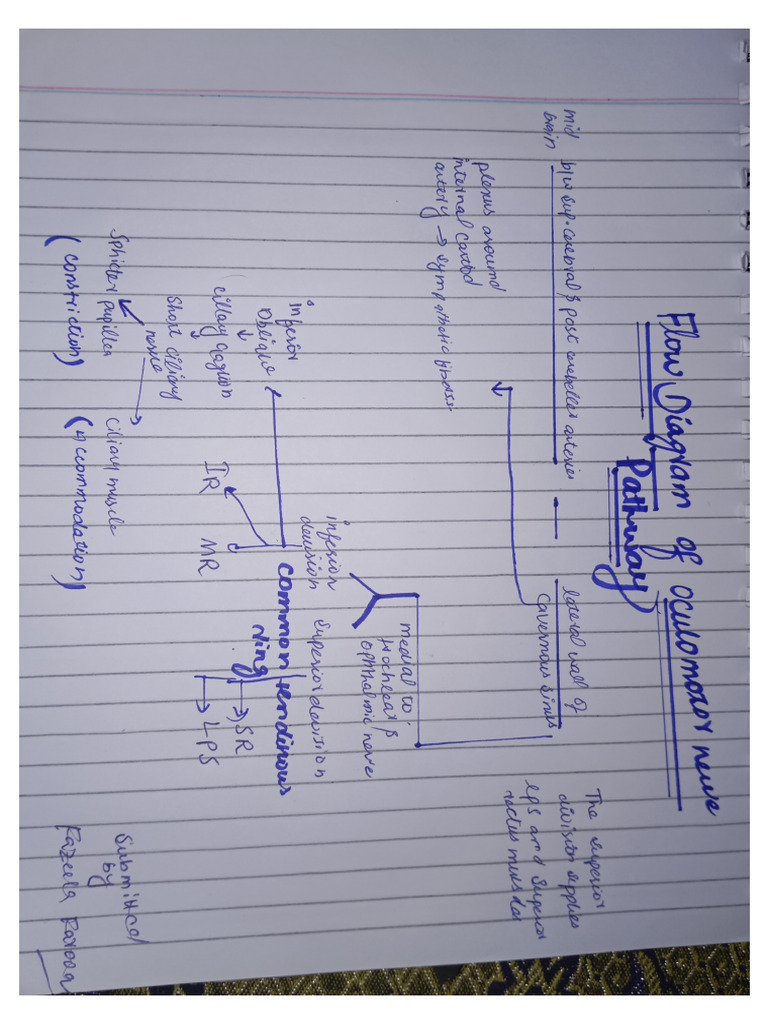 Flow Diagram of Oculomotor nerve
Pathway
mid
brain
b/w sup. cerebral & post cerebeller arteries
lateral wall of
Cavernous Sinus
plexus around
internal carotid
artery → sympathetic fibers
The superior
division supplies
LPS and superior
rectus muscles
medial to
trochlear &
ophthalmic nerve
inferior
devision
superior devision
common tendinous
ring
→ SR
→ LPS
inferior
oblique
↓
cillary ganglion
↓
Short ciliary
nerve
IR
MR
Sphicter pupillea
(constriction)
ciliary muscle
(Accommodation)
Submitted
by
Fazeela Farooq